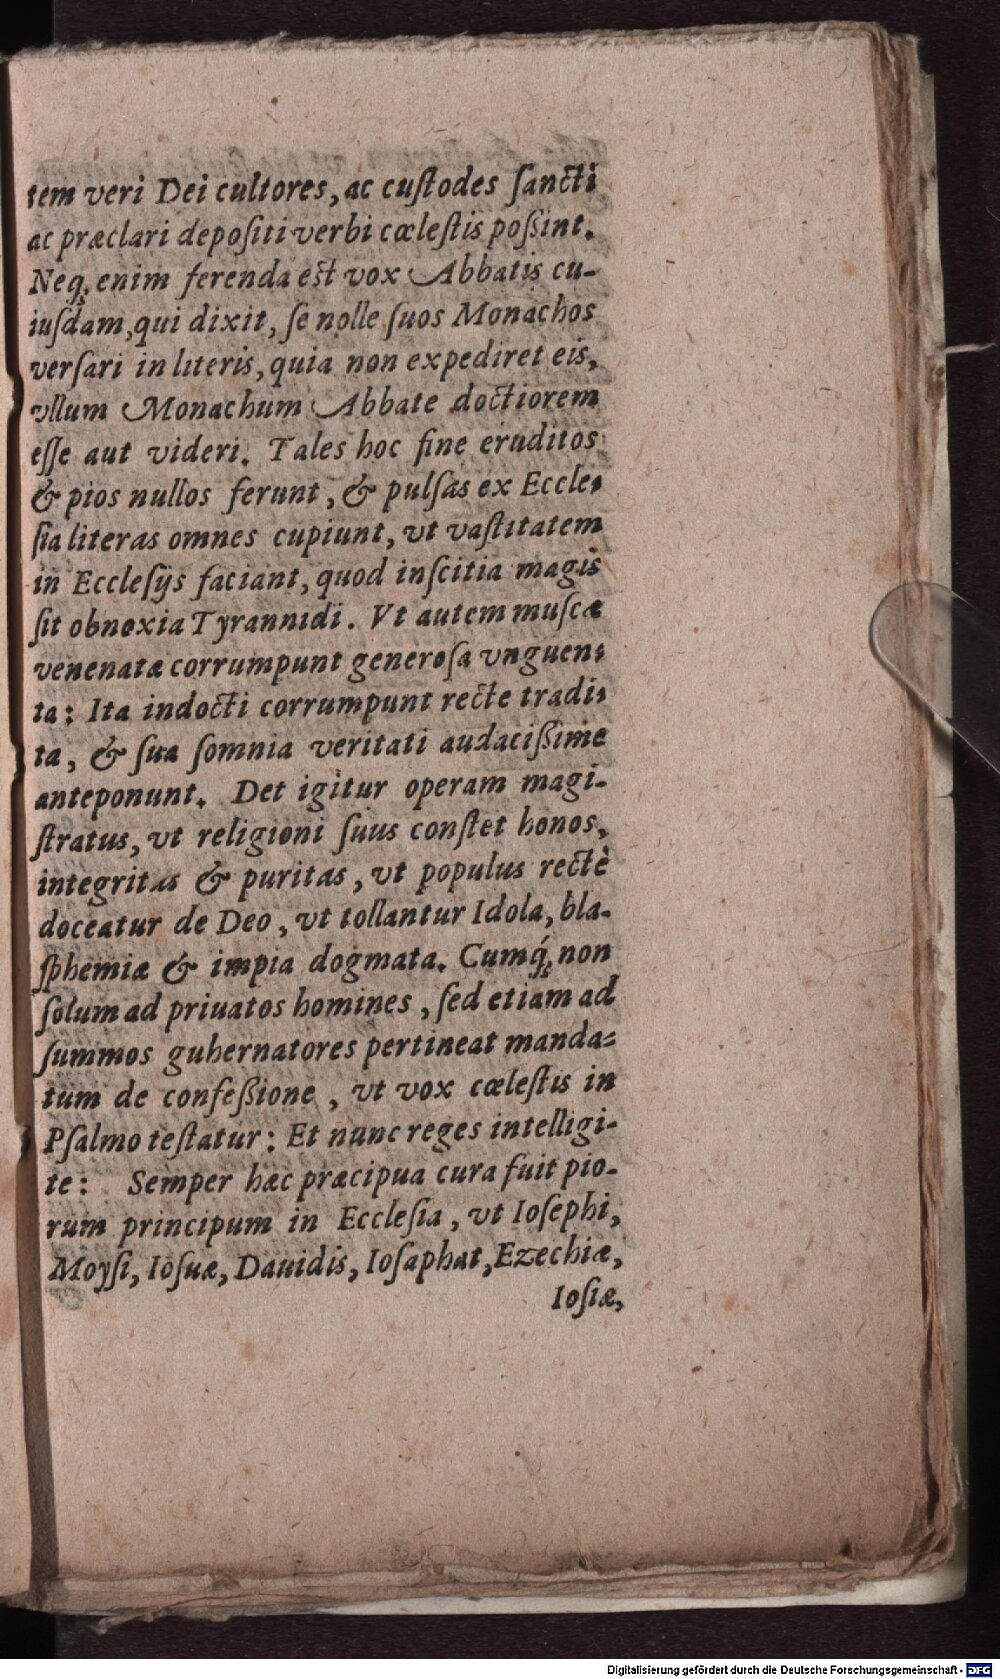 tem veri Dei cultores, ac custodes sancti
ac præclari depositi verbi cœlestis poßint.
Neq; enim ferenda est vox Abbatis cu-
iusdam, qui dixit, se nolle suos Monachos
versari in literis, quia non expediret eis,
vllum Monachum Abbate doctiorem
esse aut videri. Tales hoc fine eruditos
& pios nullos ferunt, & pulsas ex Eccle-
sia literas omnes cupiunt, vt vastitatem
in Ecclesijs faciant, quod inscitia magis
sit obnoxia Tyrannidi. Vt autem muscæ
venenatæ corrumpunt generosa vnguen-
ta: Ita indocti corrumpunt recte tradi-
ta, & sua somnia veritati audacißime
anteponunt. Det igitur operam magi-
stratus, vt religioni suus constet honos,
integritas & puritas, vt populus rectè
doceatur de Deo, vt tollantur Idola, bla-
sphemiæ & impia dogmata. Cumq́; non
solum ad priuatos homines, sed etiam ad
summos gubernatores pertineat manda-
tum de confeßione, vt vox cœlestis in
Psalmo testatur: Et nunc reges intelligi-
te: Semper hæc præcipua cura fuit pio-
rum principum in Ecclesia, vt Iosephi,
Moysi, Iosuæ, Dauidis, Iosaphat, Ezechiæ,
Iosiæ,
Digitalisierung gefördert durch die Deutsche Forschungsgemeinschaft - DFG